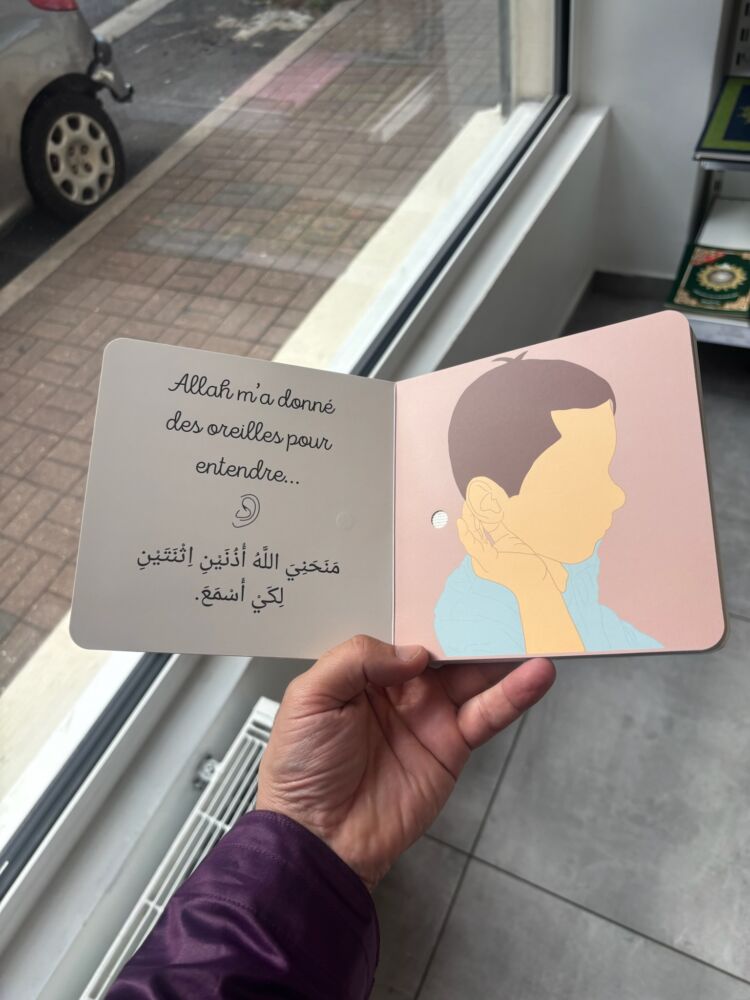 Allah m'a donné
des oreilles pour
entendre...
مَنَحَنِيَ اللَّهُ أُذُنَيْنِ اِثْنَتَيْنِ
لِكَيْ أَسْمَعَ.